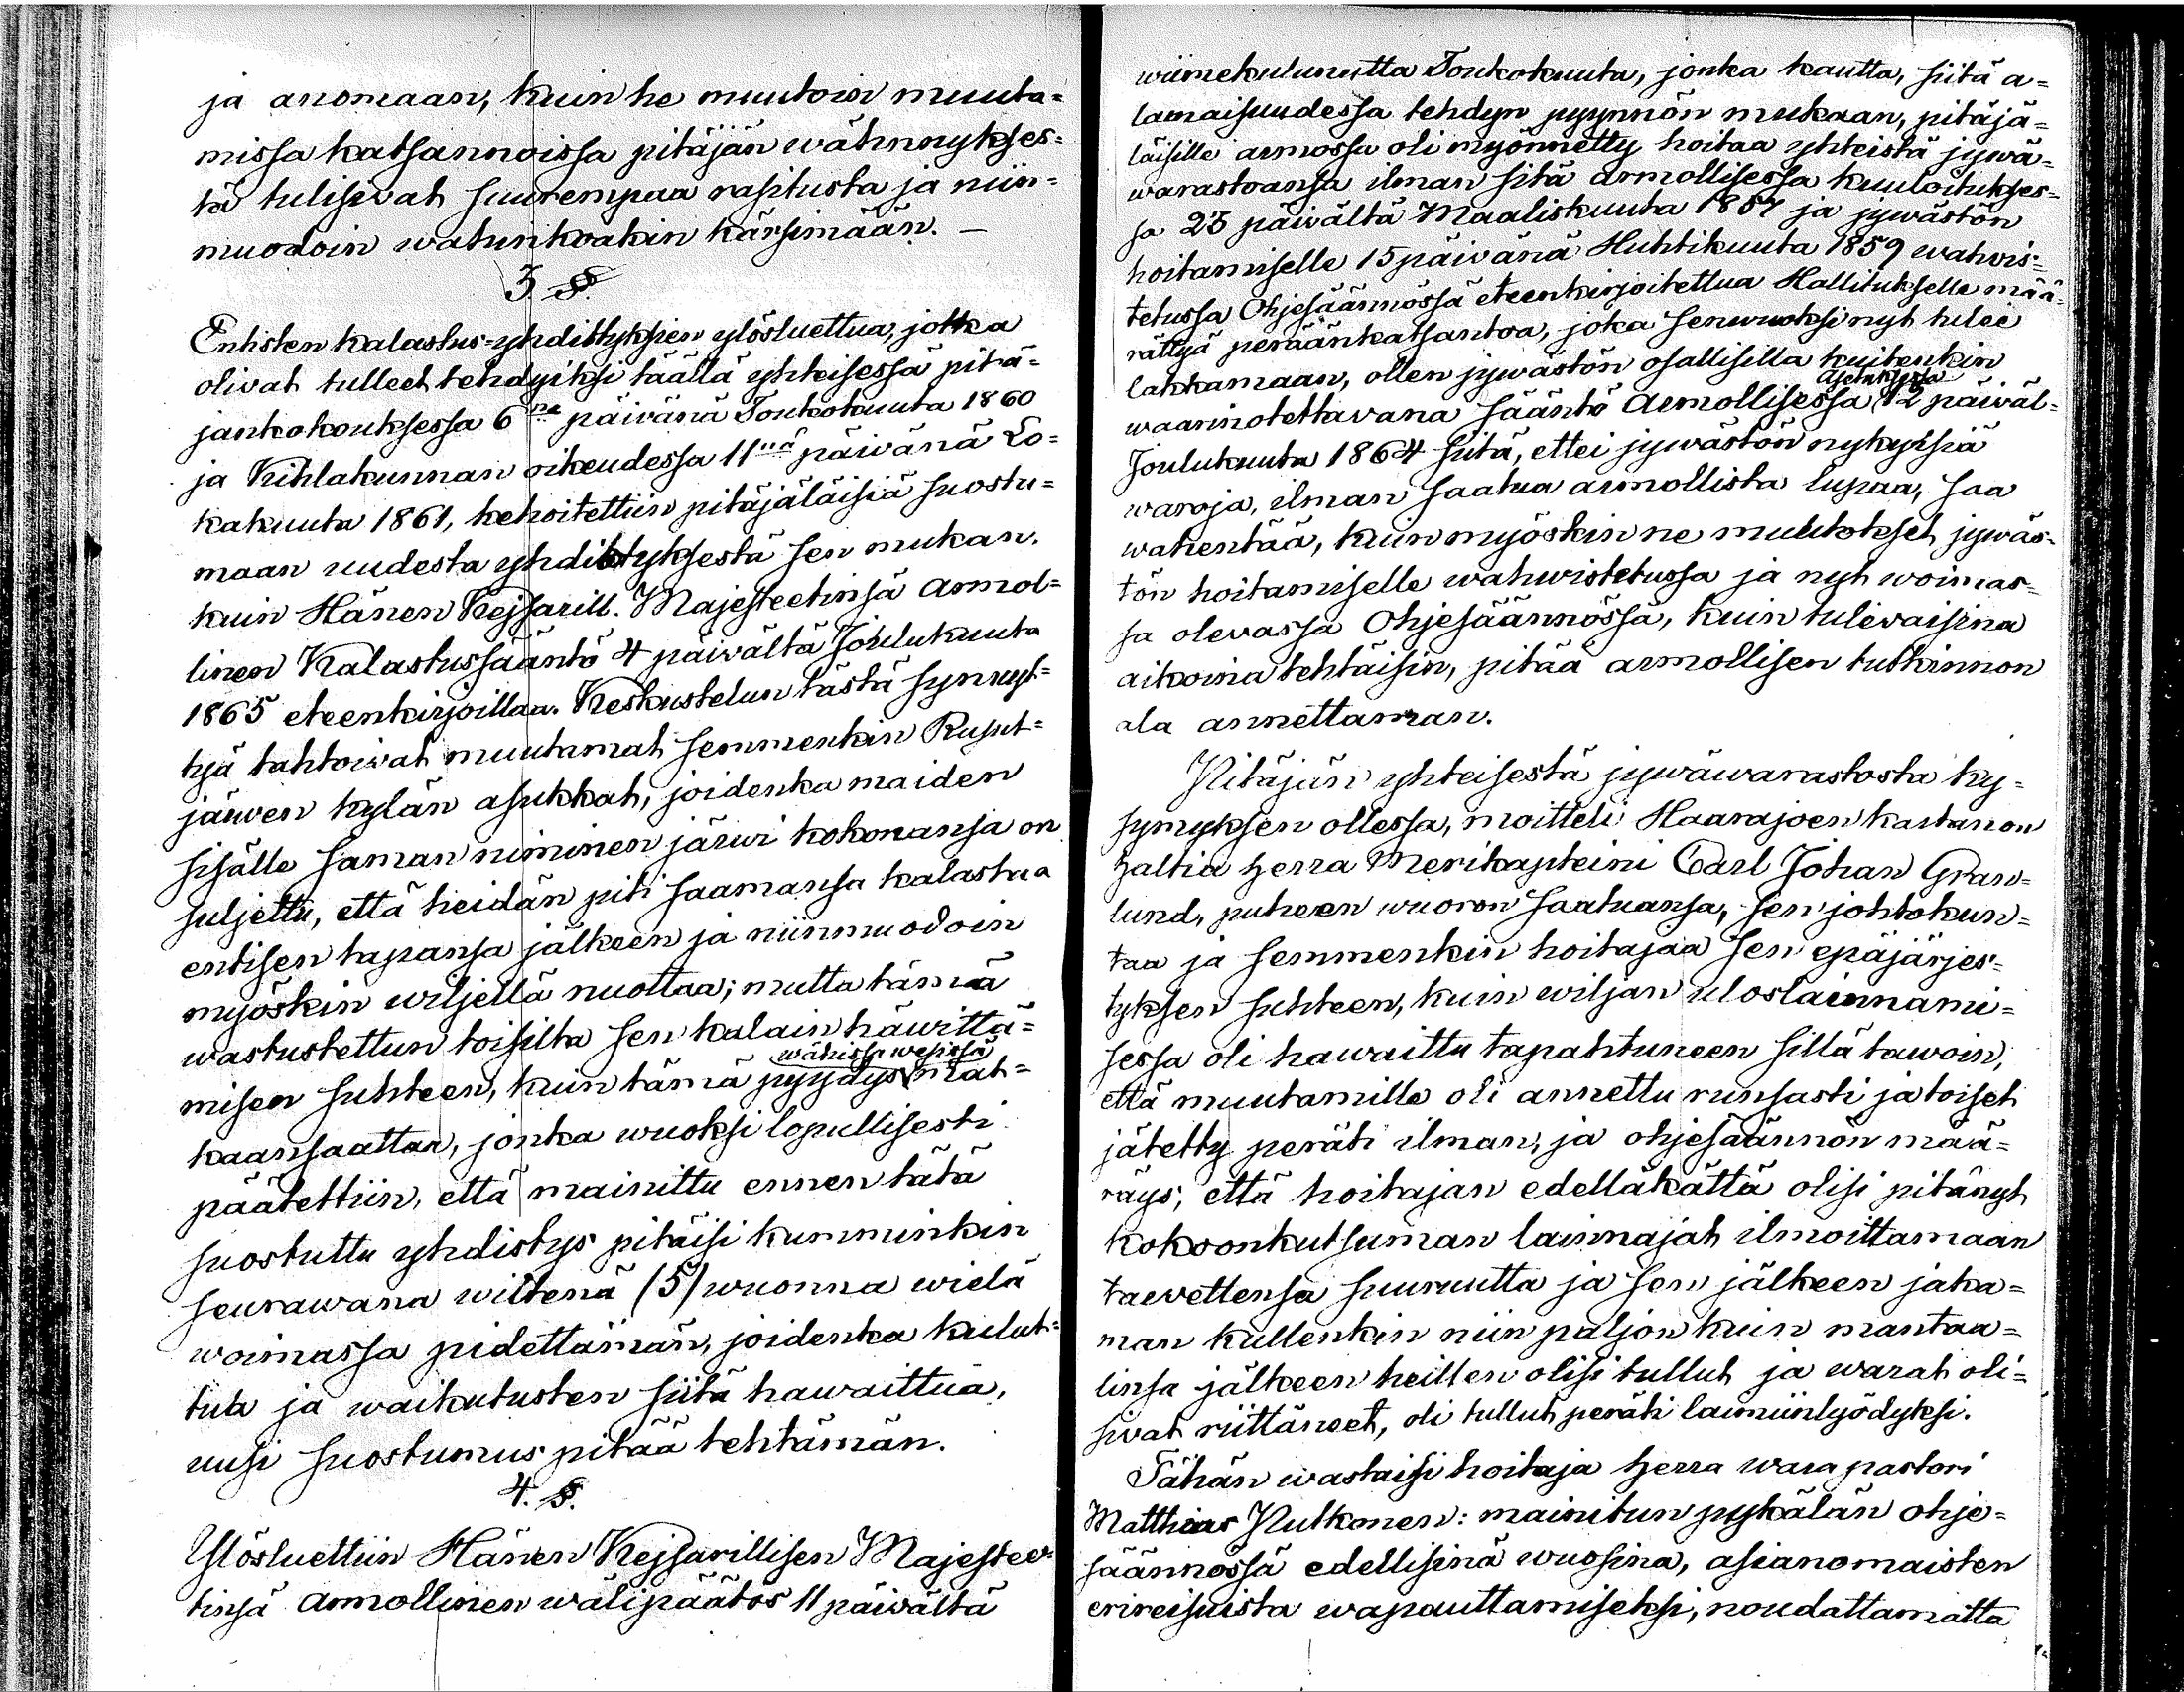 ja anomaan, kuin he muutoin muuta=
missa katsannoissa pitäjän wähnnykses=
tä tulisivat suurempaa rasitusta ja niin=
muodoin watunkoakin kärsimään. –
3 §.
Entisten kalastus=yhdistyksien ylösluettua, jotka
olivat tulleet tehdyiksi täällä yhteisessä pitä=
jänkokouksessa 6na päivänä Toukokuuta 1860
ja Kihlakunnan oikeudessa 11nä päivänä Lo=
kakuuta 1861, kehoitettiin pitäjäläisiä suostu=
maan uudesta yhdistyksestä sen mukan,
kuin Hänen Keisarill. Majesteetinsä armol=
linen Kalastussääntö 4 päivältä Joulukuuta
1865 eteenkirjoittaa. Keskustelun tästä synnyt=
tyä tahtoivat muutamat semmenkin Rusut=
järwen kylän asukkat, joidenka maiden
sisälle saman niminen järwi kokonansa on
suljettu, että heidän piti saamansa kalastaa
entisen tapansa jälkeen ja niinmuodoin
myöskin wiljellä nuottaa; mutta tämä
wastustettun toisilta sen kalain häwittä=
misen suhteen, kuin tämä pyydys wähissä wesissä mat=
kaansaattaa, jonka wuoksi lopullisesti
päätettiin, että mainittu ennen tätä
suostuttu yhdistys pitäisi kumminkin
seurawana wiitenä (5) wuonna wielä
woimassa pidettämän, joidenka kulut=
tua ja waikutusten siitä hawaittua,
uusi suostumus pitää tehtämän.
4. §.
Ylösluettiin Hänen Keisarillisen Majestee=
tinsä armollinen wälipäätös 11 päivältä
wiimekulunutta Toukokuuta, jonka kautta, siitä a=
lamaisuudessa tehdyn pyynnön mukaan, pitäjä=
läisille armossa oli myönnetty hoitaa yhteistä jywä=
warastoansa ilman sitä armollisessa kuuloitukses=
sa 23 päivältä Maaliskuuta 1857 ja jywästön
hoitamiselle 15 päivänä Huhtikuuta 1859 wahwis=
tetussa Ohjesäännössä eteenkirjoitettua Hallitukselle mää=
rättyä peräänkatsantoa, joka senwuoksi nyt tulee
lakkamaan, ollen jywästön osallisilla kuitenkin
waarinotettavana sääntö Armollisessa Asetuksessa 12 päiväl=
Joulukuuta 1864 siitä, ettei jywästön nykyisiä
waroja, ilman saatua armollista lupaa, saa
wähentää, kuin myöskin ne muutokset jywäs=
tön hoitamiselle wahwistetussa ja nyt woimas=
sa olevassa Ohjesäännössä, kuin tulevaisina
aikoina tehtäisin, pitää armollisen tutkinnon
ala annettaman.
Pitäjän yhteisestä jywäwarastosta ky=
symyksen ollessa, moitteli Haarajoen kartanon
haltia Herra Merikapteini Carl Johan Gran=
lund, puheen wuoron saatuansa, sen johtokun=
taa ja semmenkin hoitajaa sen epäjärjes=
tyksen suhteen, kuin wiljan uloslainnami=
sessa oli hawaittu tapahtuneen sillä tawoin,
että muutamille oli annettu runsasti ja toiset
jätetty peräti ilman, ja ohjesäännön mää=
räys, että hoitajan edelläkättä olisi pitänyt
kokoonkutsuman lainnajat ilmoittamaan
tarvettensa suuruutta ja sen jälkeen jaka=
man kullenkin niin paljon kuin mantaa=
linsa jälkeen heillen olisi tullut ja warat oli=
sivat riittäneet, oli tullut peräti laimiinlyödyksi.
Tähän wastaisi hoitaja Herra wara pastori
Matthias Putkonen: mainitun pykälän ohje=
säännössä edellisinä wuosina, asianomaisten
erineisuista wapauttamiseksi, noudattamatta